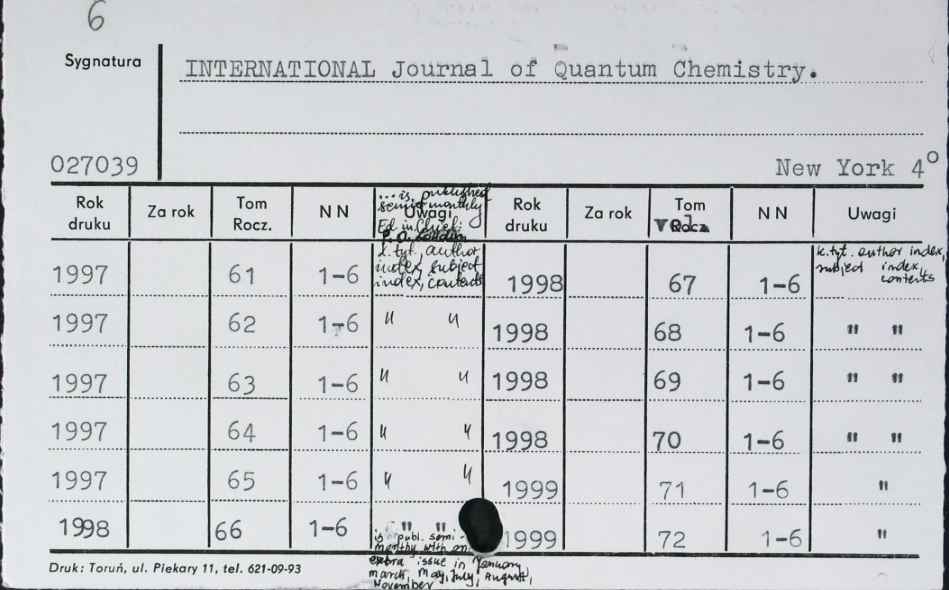 6
Sygnatura
INTERNATIONAL Journal of Quantum Chemistry.
027039
New York 4°
Rok druku Za rok Tom Rocz. NN Uwagi Rok druku Za rok Tom Vol. NN Uwagi
... is published
semimonthly
Ed. in Chief:
k. tyt., author
index, subject
index, contents
k. tyt. author index,
subject index,
contents
1997 61 1-6 1998 67 1-6
1997 62 1-6 " " 1998 68 1-6 " "
1997 63 1-6 " " 1998 69 1-6 " "
1997 64 1-6 " " 1998 70 1-6 " "
1997 65 1-6 " " 1999 71 1-6 "
1998 66 1-6 " " 1999 72 1-6 "
is publ. semi-
monthly with an
extra issue in January,
march, May, July, August,
November
Druk: Toruń, ul. Piekary 11, tel. 621-09-93